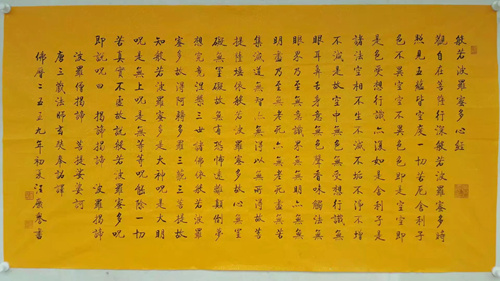 般若波羅蜜多心經
觀自在菩薩行深般若波羅蜜多時
照見五蘊皆空度一切苦厄舍利子
色不異空空不異色色即是空空即
是色受想行識亦復如是舍利子是
諸法空相不生不滅不垢不淨不增
不減是故空中無色無受想行識無
眼耳鼻舌身意無色聲香味觸法無
眼界乃至無意識界無無明亦無無
明盡乃至無老死亦無老死盡無苦
集滅道無智亦無得以無所得故菩
提薩埵依般若波羅蜜多故心無罣
礙無罣礙故無有恐怖遠離顛倒夢
想究竟涅槃三世諸佛依般若波羅
蜜多故得阿耨多羅三藐三菩提故
知般若波羅蜜多是大神呪是大明
呪是無上呪是無等等呪能除一切
苦真實不虛故說般若波羅蜜多呪
即說呪曰 揭諦揭諦 波羅揭諦
波羅僧揭諦 菩提薩婆訶
唐三藏法師玄奘奉詔譯
佛曆二五三九年初夏汪書